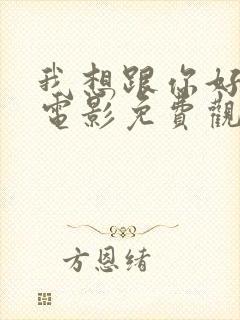 我想跟你好
電影免費觀
方恩緒